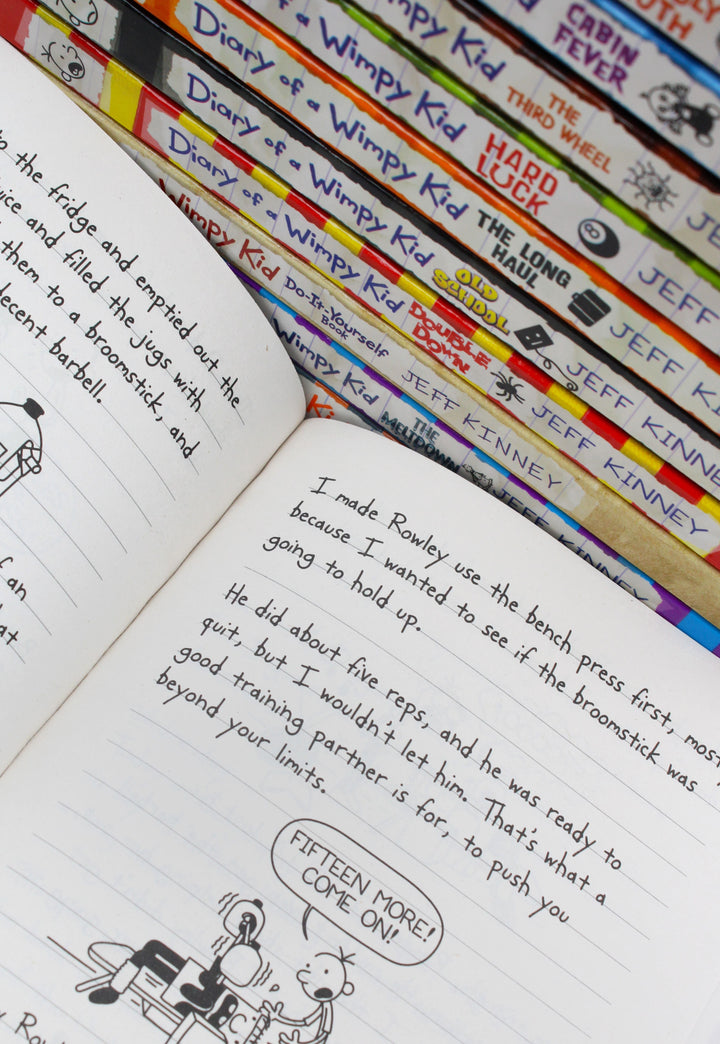 CABIN
FEVER
Wimpy Kid
THE
THIRD WHEEL
of a Wimpy Kid
HARD
LUCK
JEFF
Diary of a Wimpy Kid
THE LONG
HAUL
JEFF
Diary of a Wimpy Kid
OLD
SCHOOL
JEFF KINNEY
Diary of a Wimpy Kid
DOUBLE
DOWN
JEFF KINNEY
Wimpy Kid
Do-It-Yourself
Book
JEFF KINNEY
Wimpy Kid
THE
MELTDOWN
JEFF KINNEY
to the fridge and emptied out the
and filled the jugs with
them to a broomstick, and
decent barbell.
I made Rowley use the bench press first, most
because I wanted to see if the broomstick was
going to hold up.
He did about five reps, and he was ready to
quit, but I wouldn't let him. That's what a
good training partner is for, to push you
beyond your limits.
FIFTEEN MORE!
COME ON!